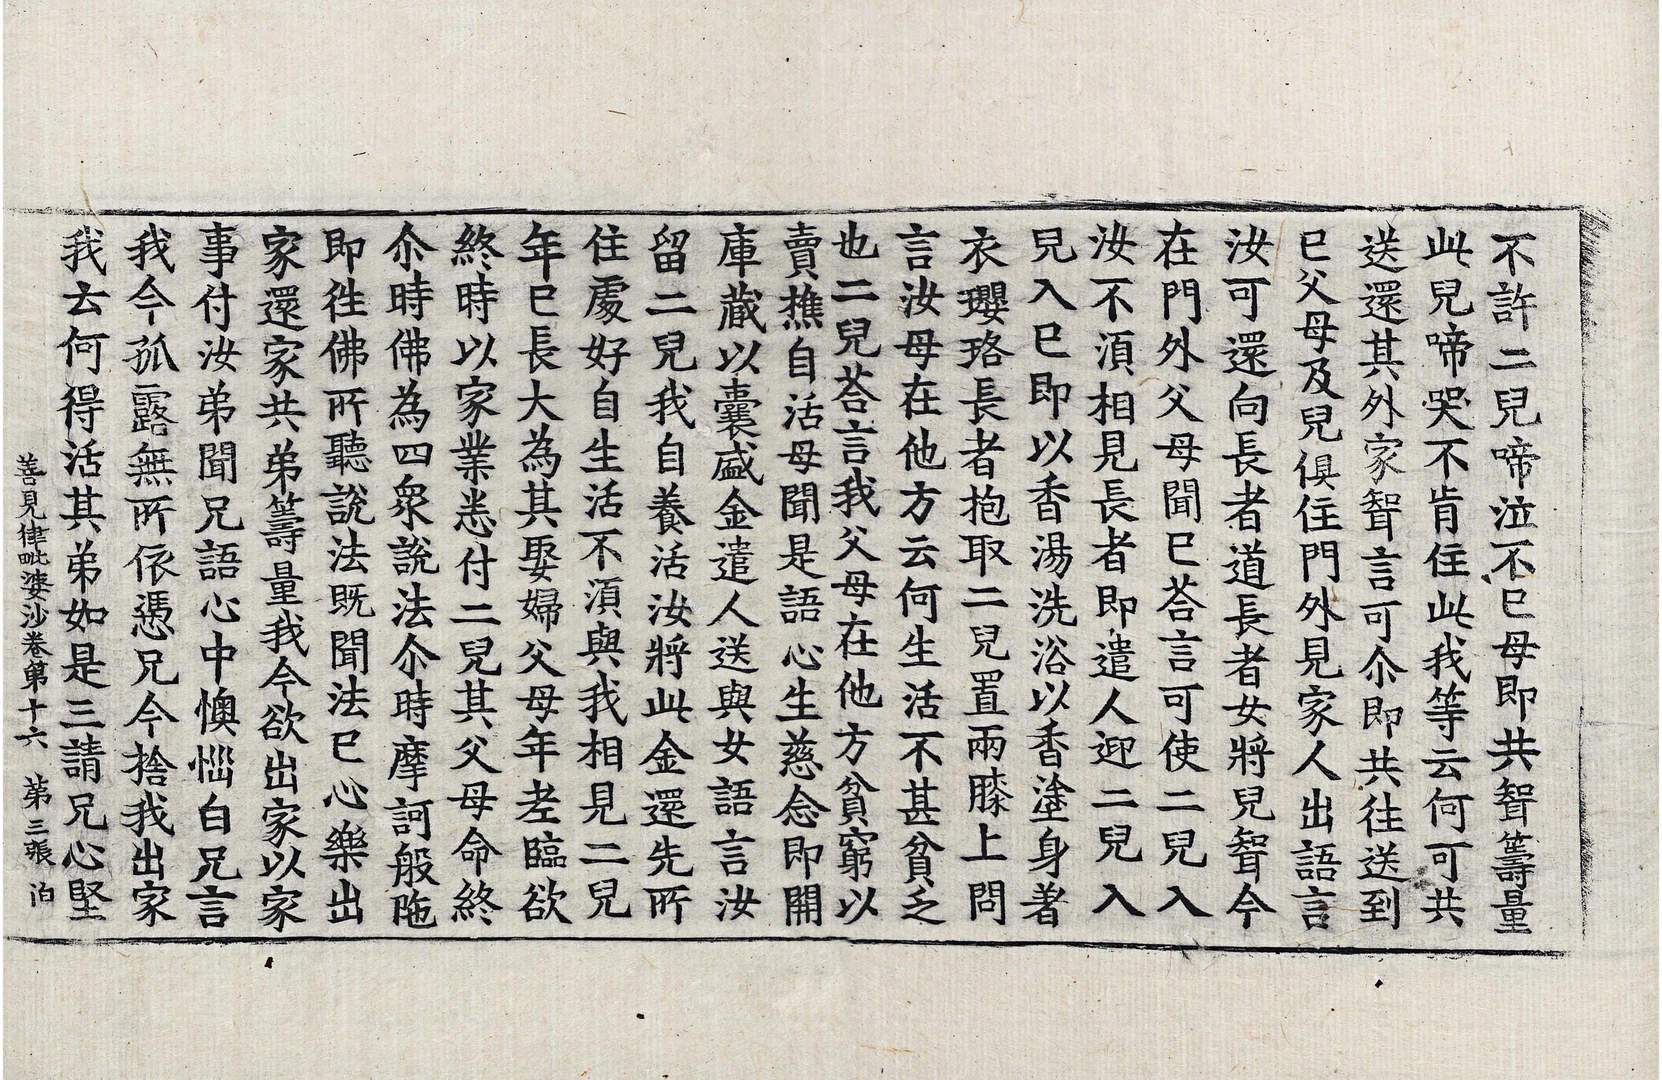 不許二兒啼泣不已母即共聟籌量
此兒啼哭不肯住此我等云何可共
送還其外家聟言可尒即共往送到
已父母及兒俱住門外見家人出語言
汝可還向長者道長者女將兒聟今
在門外父母聞已荅言可使二兒入
汝不湏相見長者即遣人迎二兒入
兒入已即以香湯洗浴以香塗身著
衣瓔珞長者抱取二兒置兩膝上問
言汝母在他方云何生活不甚貧乏
也二兒荅言我父母在他方貧窮以
賣樵自活母聞是語心生慈念即開
庫藏以囊盛金遣人送與女語言汝
留二兒我自養活汝將此金還先所
住處好自生活不湏與我相見二兒
年已長大為其娶婦父母年老臨欲
終時以家業悉付二兒其父母命終
尒時佛為四衆說法尒時摩訶般陁
即徃佛所聽說法既聞法已心樂出
家還家共弟籌量我今欲出家以家
事付汝弟聞兄語心中懊惱白兄言
我今孤露無所依憑兄今捨我出家
我去何得活其弟如是三請兄心堅
善見律毗婆沙卷第十六 第三張 泊